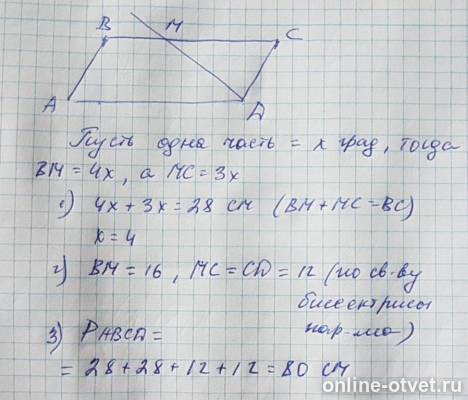 B M C
A D
Пусть одна часть = x град, тогда
BM = 4x, а MC = 3x
1) 4x + 3x = 28 см (BM + MC = BC)
x = 4
2) BM = 16, MC = CD = 12 (по св-ву
биссектрисы
пар-ма)
3) PABCD =
= 28 + 28 + 12 + 12 = 80 см
online-otvet.ru